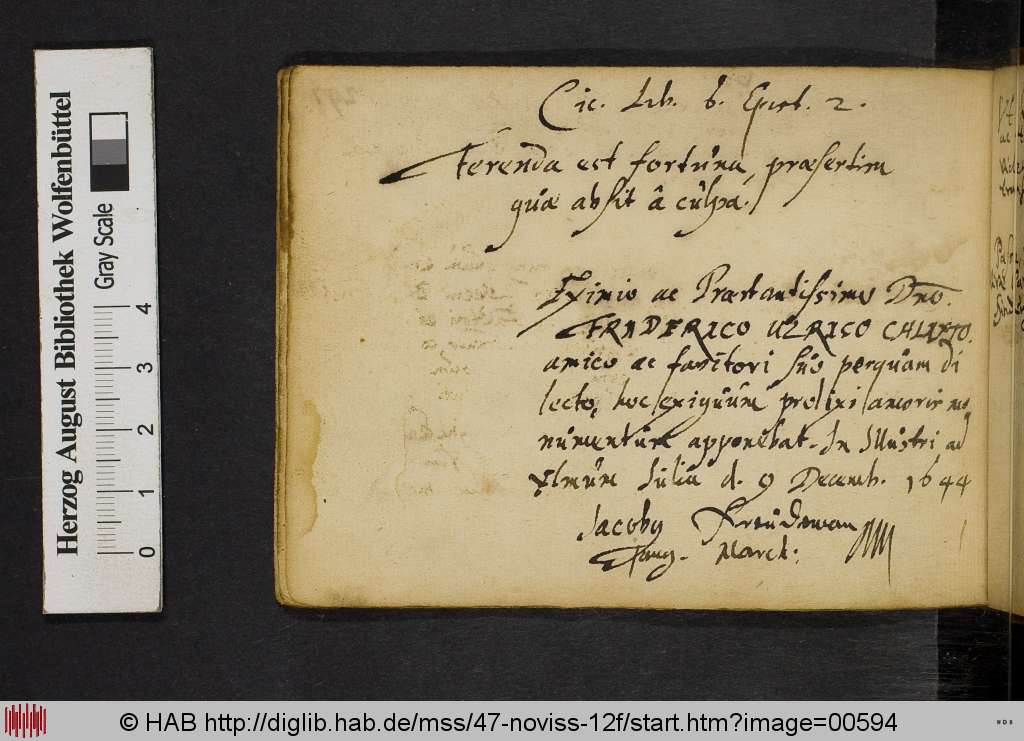 Cic. Lib. 6. Epist. 2.
Ferenda est fortuna, præsertim
quæ absit â culpa.
Eximio ac Præstantissimo Dno.
FRIDERICO ULRICO CALIXTO
amico ac fautori suo perquam di
lecto, hoc exiguum prolixi amoris mo
numentum apponebat. In Illustri ad
Elmum Julia d. 9 Decemb. 1644
Jacobus
Tang. March.
Herzog August Bibliothek Wolfenbüttel
Gray Scale
0 1 2 3 4
© HAB http://diglib.hab.de/mss/47-noviss-12f/start.htm?image=00594